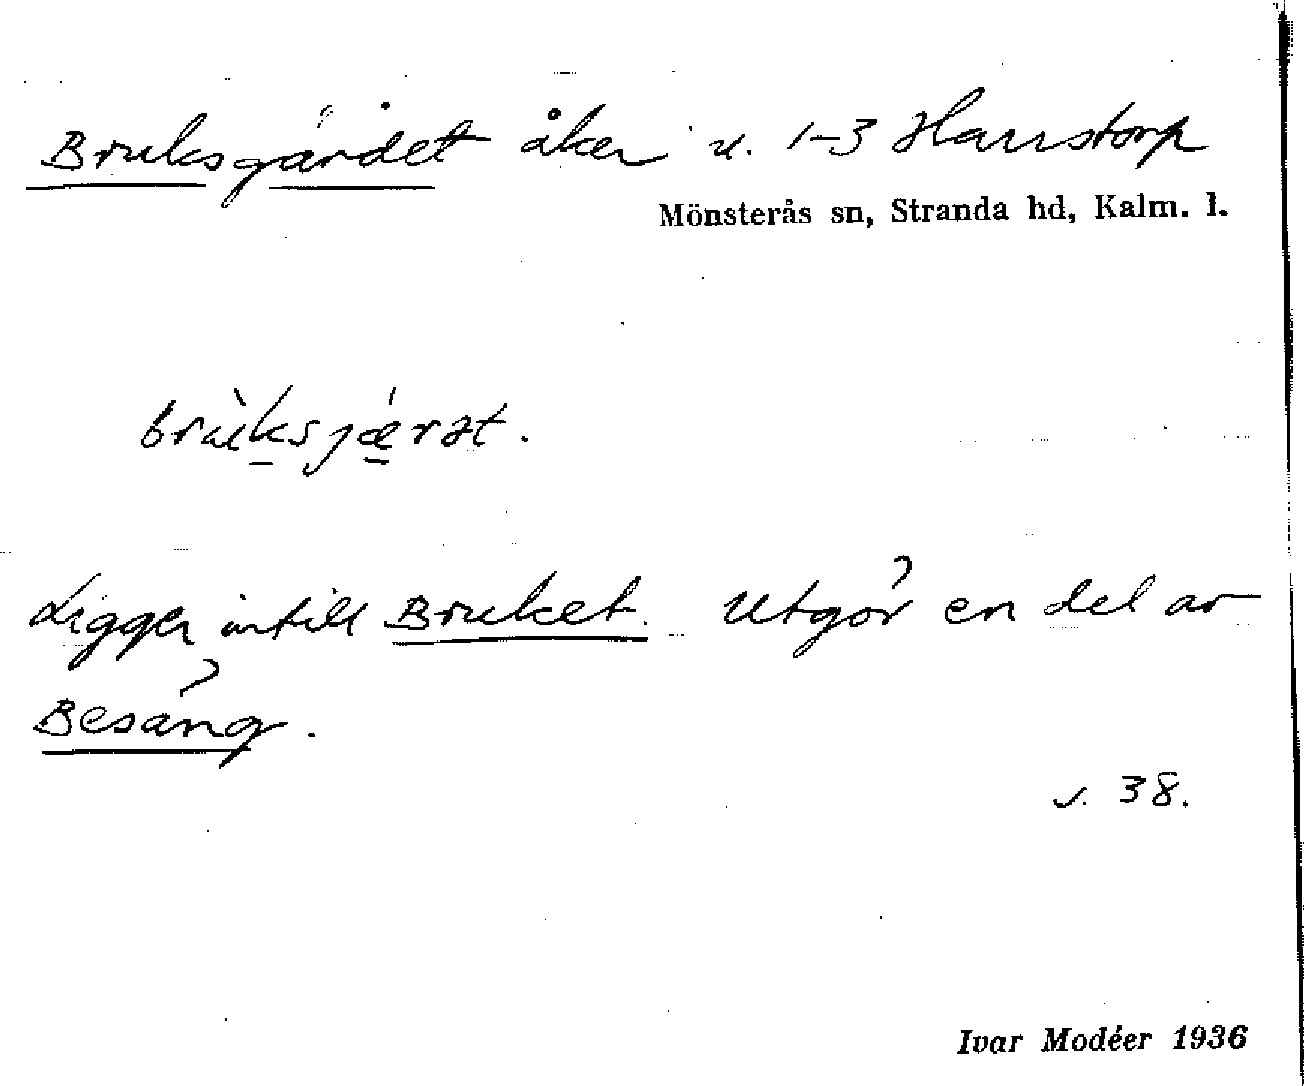 Bruksgärdet åker u. 1-3 Harrstorp
Mönsterås sn, Stranda hd, Kalm. l.
brùksjǽrət.
Ligger intill Bruket. Utgör en del av
Besäng.
s. 38.
Ivar Modéer 1936